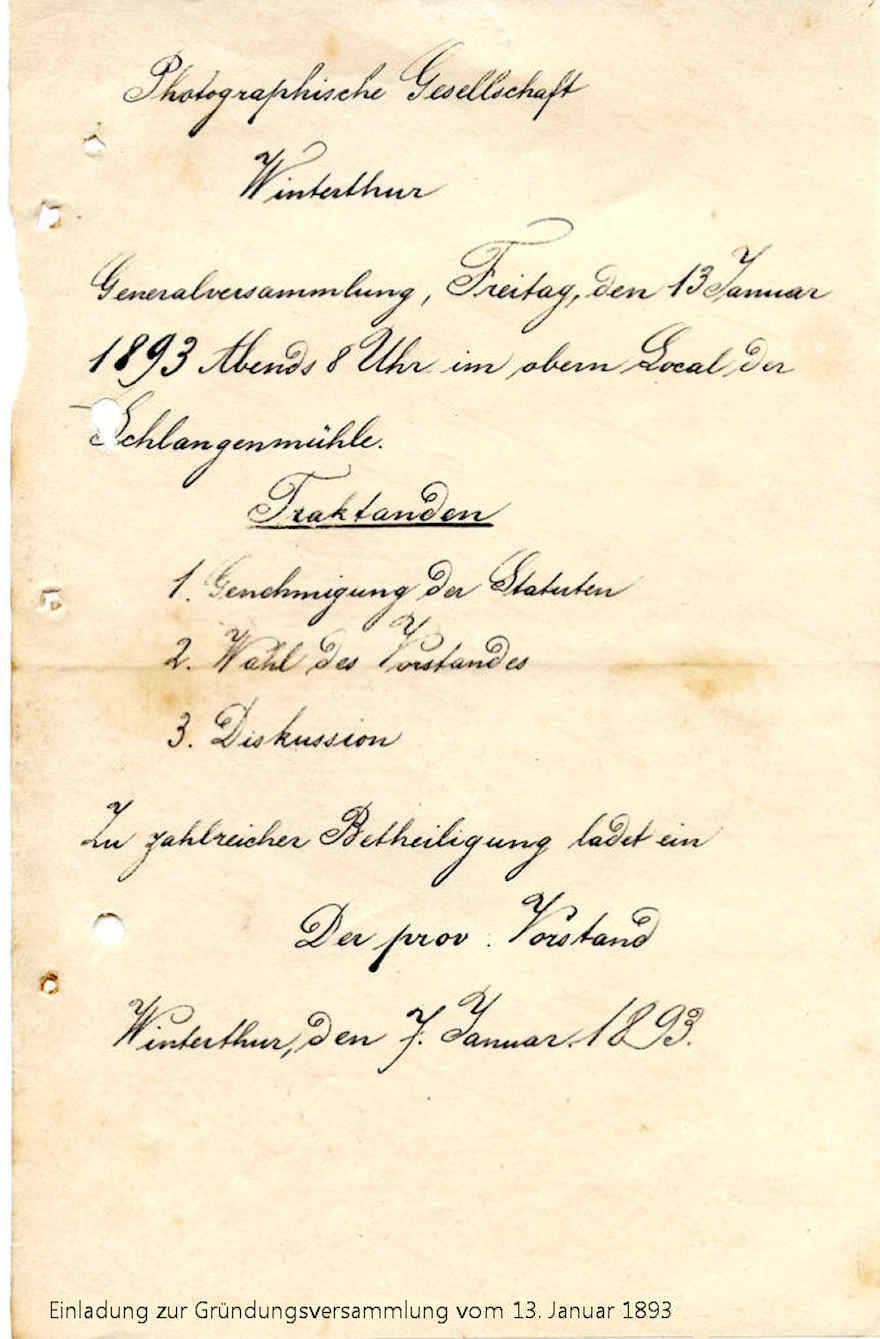 Photographische Gesellschaft
Winterthur
Generalversammlung, Freitag, den 13 Januar
1893 Abends 8 Uhr im obern Local der
Schlangenmühle.
Traktanden
1. Genehmigung der Statuten
2. Wahl des Vorstandes
3. Diskussion
Zu zahlreicher Betheiligung ladet ein
Der prov. Vorstand
Winterthur, den 7. Januar 1893.
Einladung zur Gründungsversammlung vom 13. Januar 1893